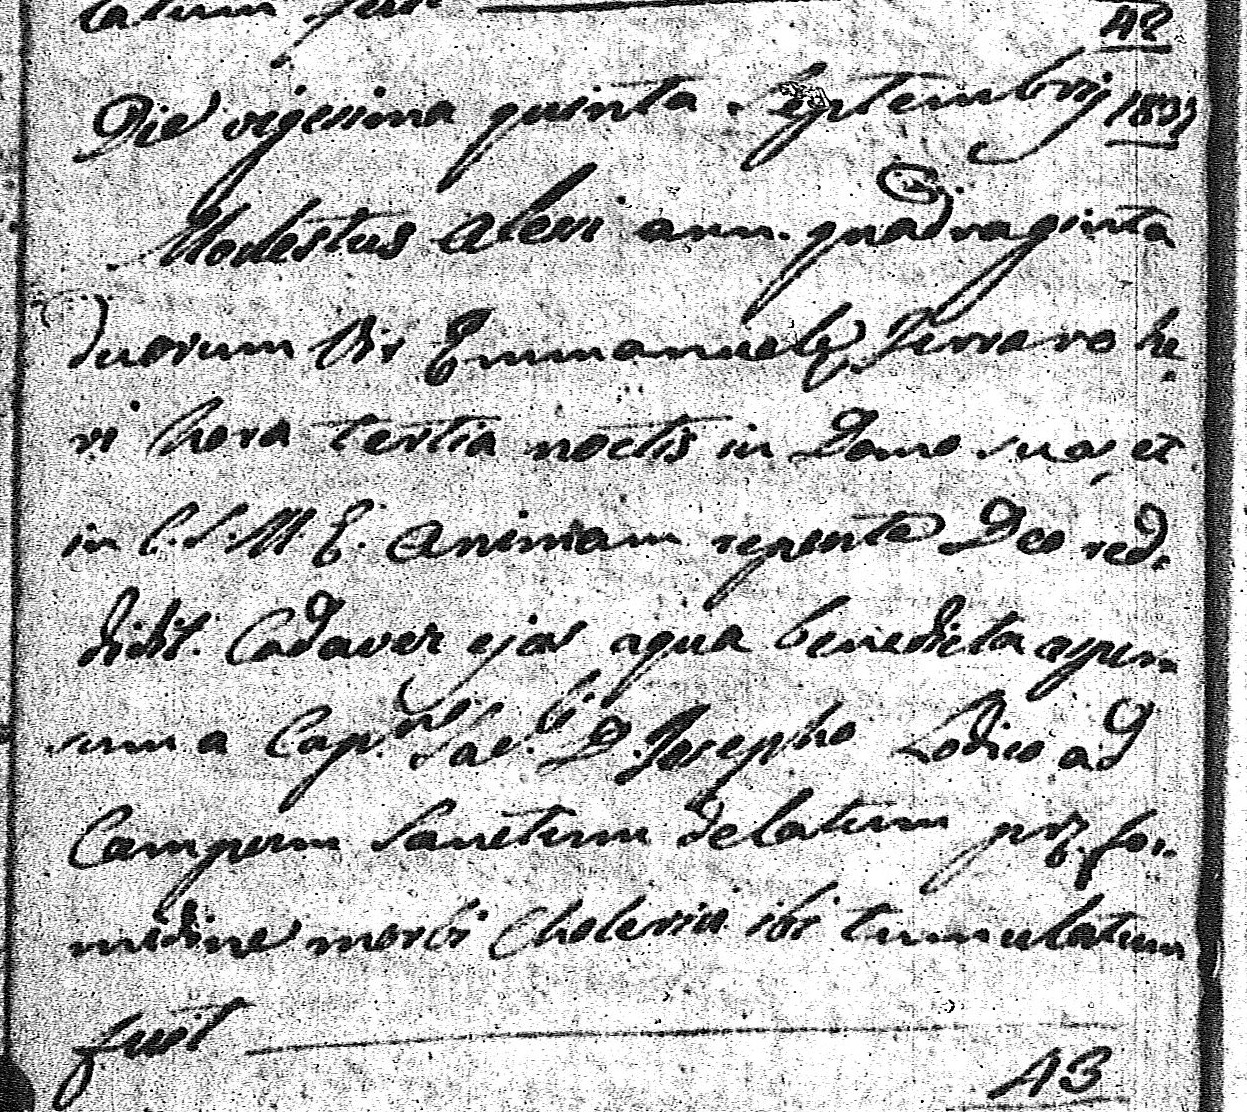 latum fuit
42
Die vigesima quinta Septembris 1837
Modestus Alesi ann. quadraginta
duorum Vir Emmanuelis Ferraro he
ri hora tertia noctis in Domo sua, et
in C. S. M. E. animam repente Deo red.
didit. Cadaver ejus aqua benedicta asper
sum a Cap. Sac. D. Josepho Lodico ad
Campum Sanctum delatum for.
midine morbi Cholerici ibi tumulatum
fuit
43